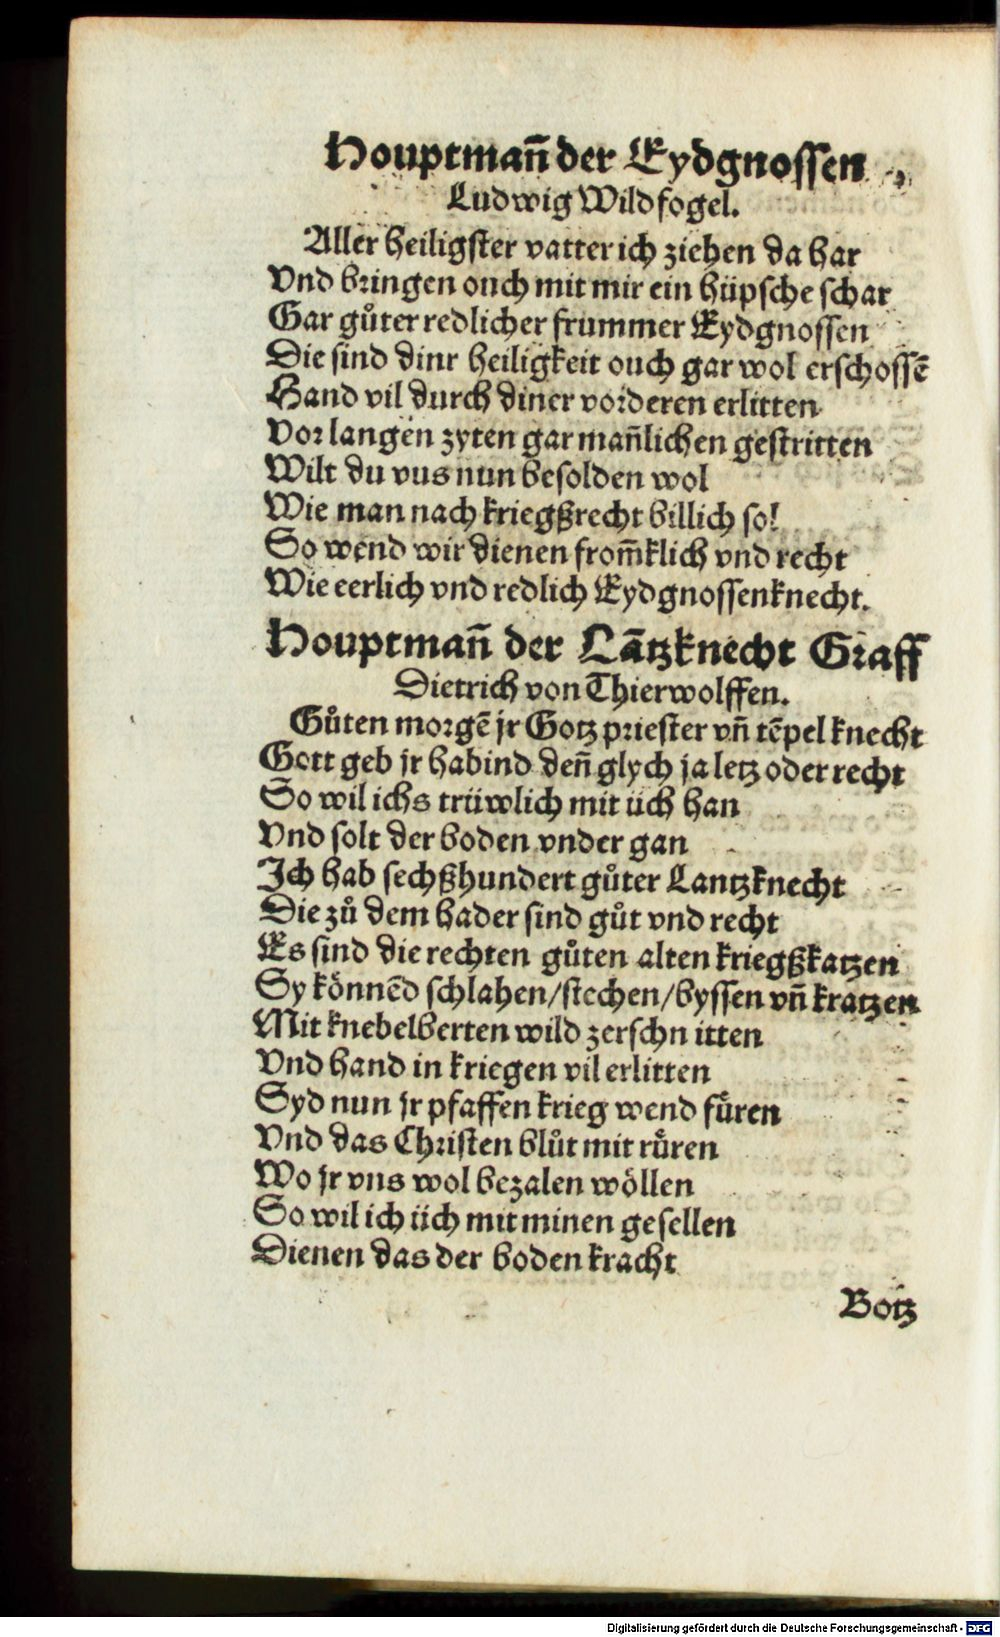 Houptmañ der Eydgnossen
Ludwig Wildfogel.
Aller heiligster vatter ich ziehen da har
Vnd bringen ouch mit mir ein hüpsche schar
Gar gůter redlicher frummer Eydgnossen
Die sind dinr heiligkeit ouch gar wol erschossē
Hand vil durch diner vorderen erlitten
Vor langen zyten gar mañlichen gestritten
Wilt du vns nun besolden wol
Wie man nach kriegßrecht billich sol
So wend wir dienen from̄klich vnd recht
Wie eerlich vnd redlich Eydgnossenknecht.
Houptmañ der Lātzknecht Graff
Dietrich von Thierwolffen.
Gůten morgē jr Gotz priester vñ tēpel knecht
Gott geb jr habind deñ glych ja letz oder recht
So wil ichs trüwlich mit üch han
Vnd solt der boden vnder gan
Ich hab sechßhundert gůter Lantzknecht
Die zů dem hader sind gůt vnd recht
Es sind die rechten gůten alten kriegßkatzen
Sy könnēd schlahen/stechen/byssen vñ kratzen
Mit knebelberten wild zerschnitten
Vnd hand in kriegen vil erlitten
Syd nun jr pfaffen krieg wend fu̔ren
Vnd das Christen blůt mit rüren
Wo jr vns wol bezalen wöllen
So wil ich üch mit minen gesellen
Dienen das der boden kracht
Botz
Digitalisierung gefördert durch die Deutsche Forschungsgemeinschaft - DFG